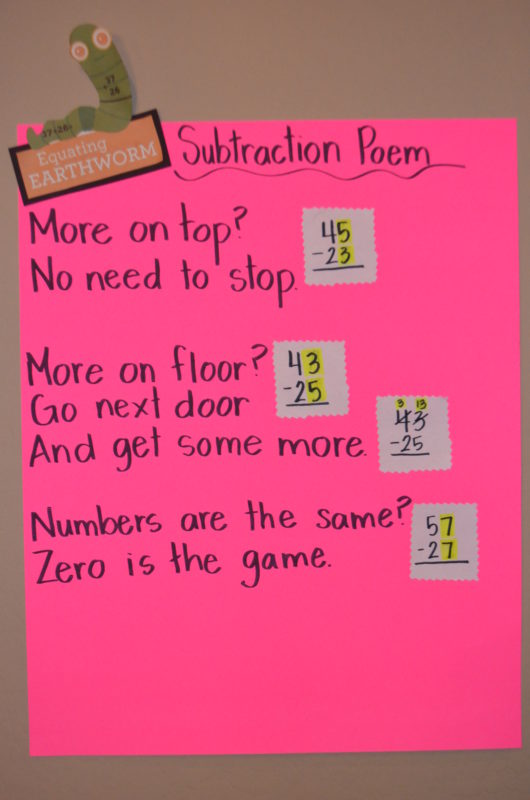 37
+ 26
37+26=
Equating
EARTHWORM
Subtraction Poem
More on top?
No need to stop.
45
-23
More on floor?
Go next door
And get some more.
43
-25
3 13
43
-25
Numbers are the same?
Zero is the game.
57
-27